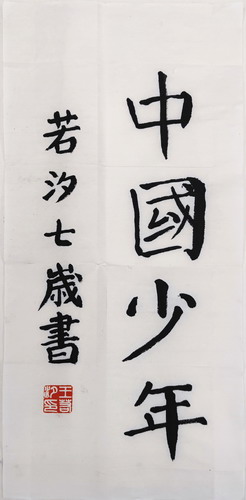 中國少年
若汐七歲書